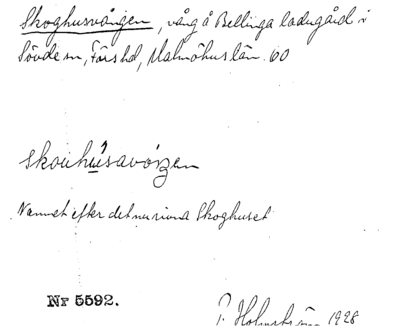 Skoghusvången, vång å Bellinga ladugård i
Sövde sn, Färs hd, Malmöhus län. 60
skouhúsavóŋen
Namnet efter det nu rivna Skoghuset
Nr 5592.
P. Holmström 1928